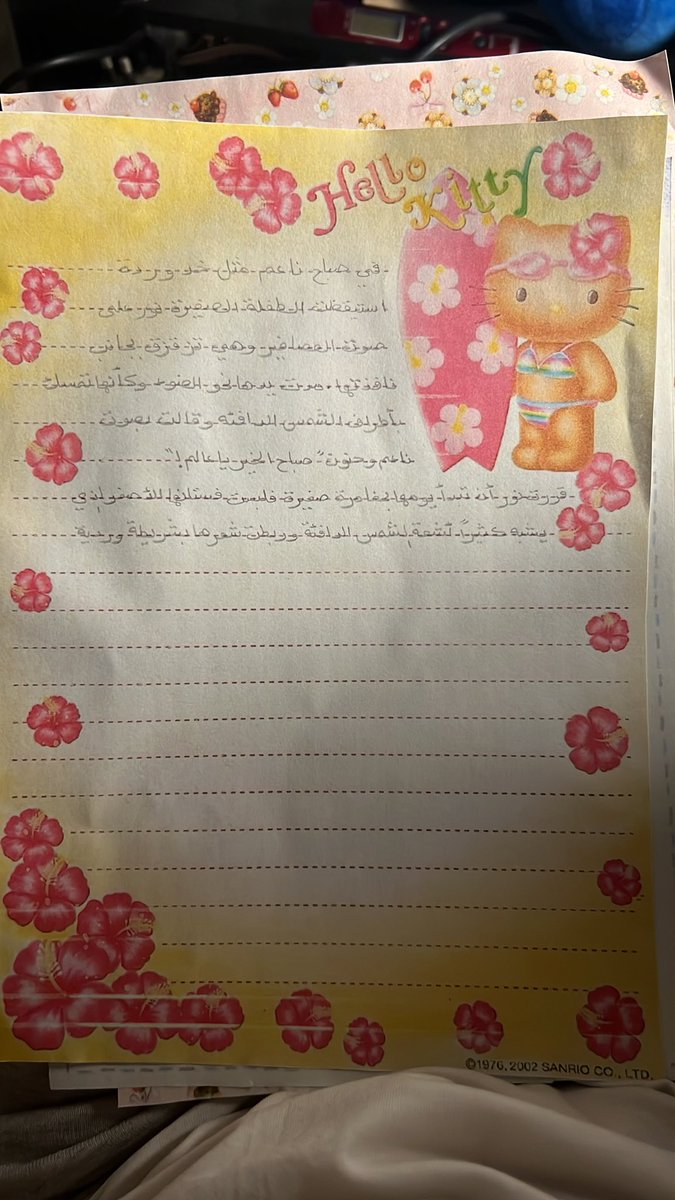 Hello Kitty
في صباح ناعم مثل خد وردة
استيقظت الطفلة الصغيرة نور على
صوت العصافير وهي تزقزق بجانب
نافذتها، مدت يدها نحو الضوء وكأنها تمسك
بأطراف الشمس الدافئة وقالت بصوت
ناعم وحنون "صباح الخير يا عالم!"
قررت نور أن تبدأ يومها بمغامرة صغيرة فلبست فستانها الأصفر الذي
يشبه كثيراً أشعة الشمس الدافئة وربطت شعرها بشريطة وردية
©1976, 2002 SANRIO CO., LTD.